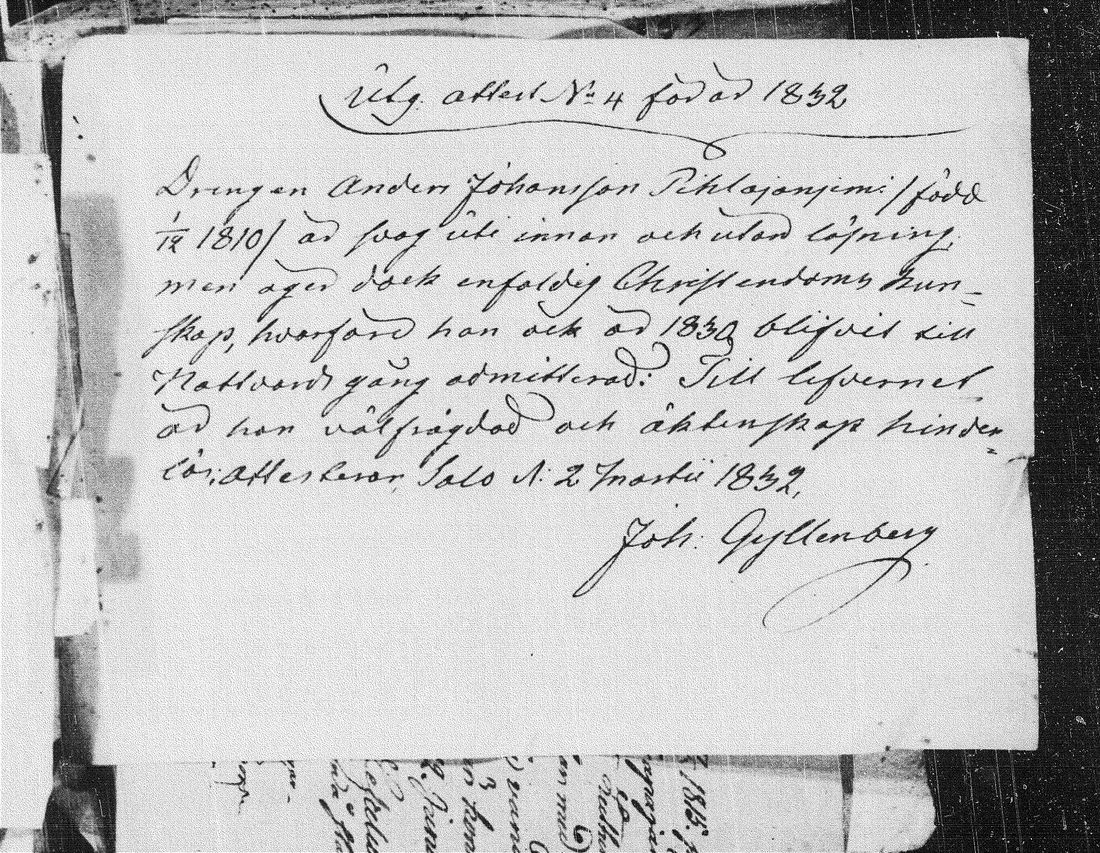 Utg. attest No 4 för år 1832
Drengen Anders Johansson Pihlajaniemi /född
1/12 1810/ är svag uti innan och utan läsning,
men äger dock enfaldig Christendoms kun-
skap, hvarföre han ock år 1830 blifvit till
Nattvards gång admitterad: Till lefvernet
är han välfrägdad och äktenskaps hinder
lös; attesterar, Salo d: 2 Martii 1832,
Joh: Gyllenberg
1815